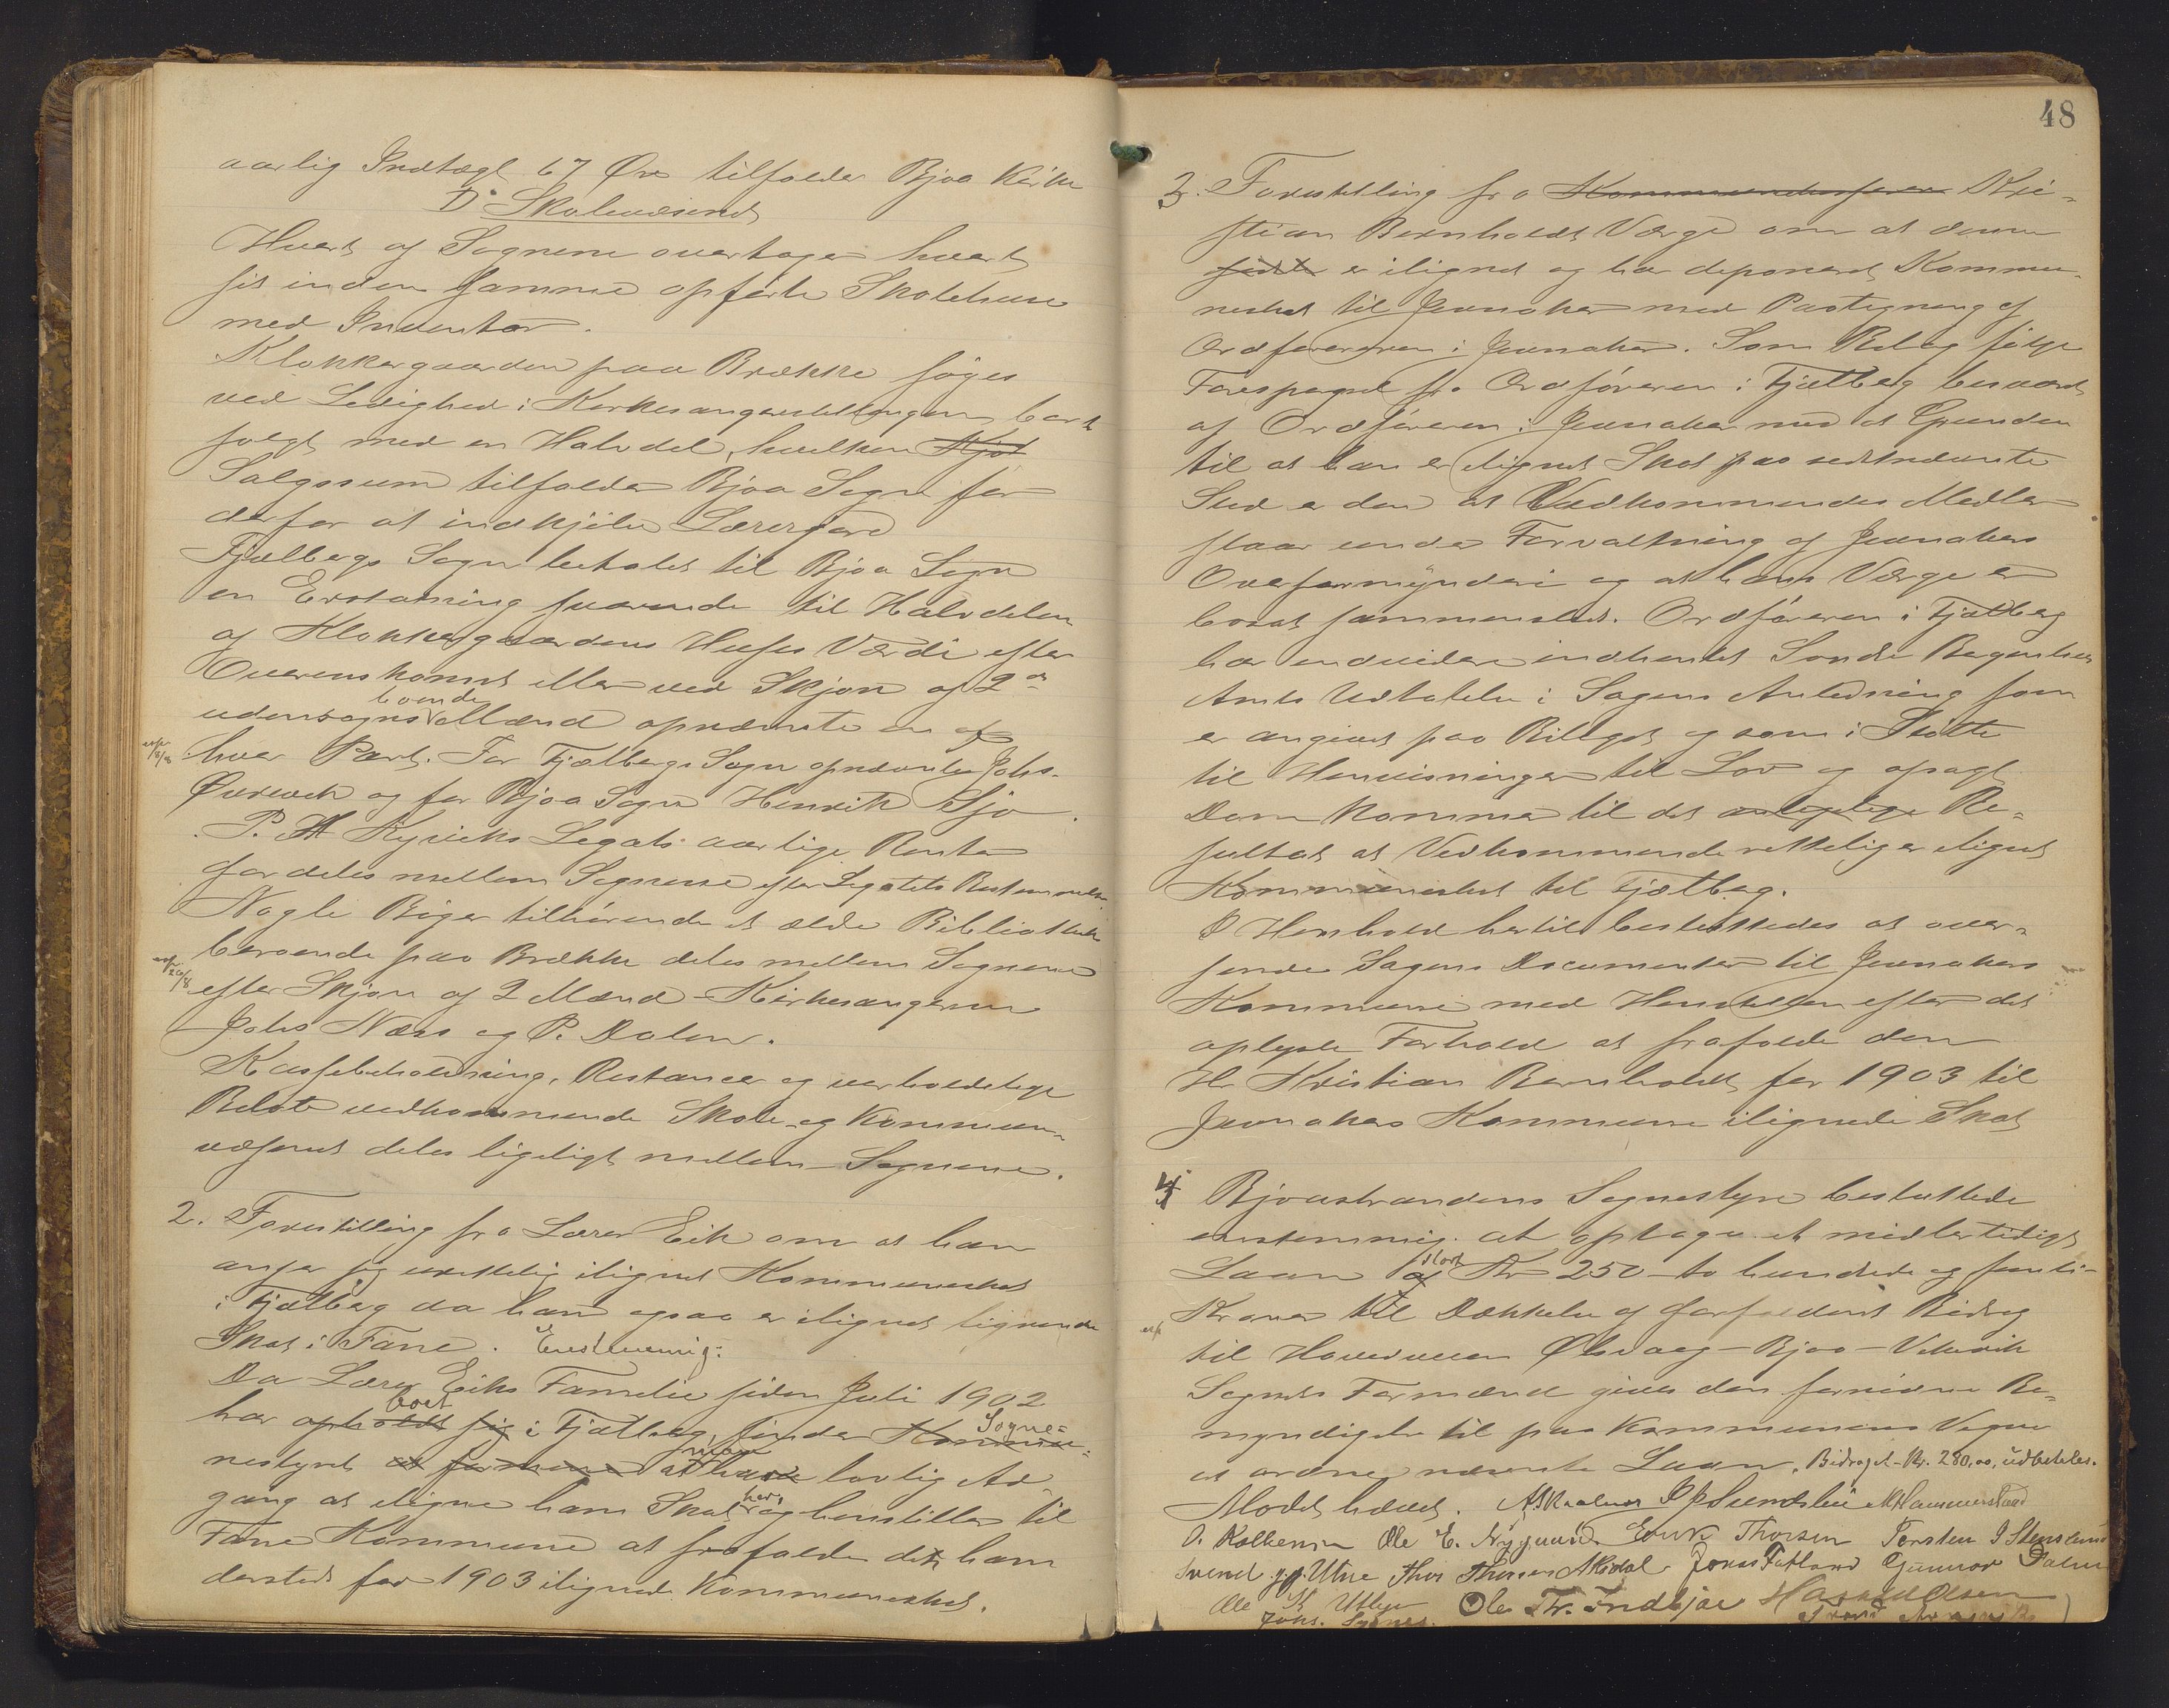 aarlig Indtægt 67 Øre tilfalder Bjoa Kirke
D. Skolevæsenet
Hvert af Sognene overtager hvert
sit inden samme opførte Skolehuse
med Inventar.
Klokkergaarden paa Brække søges
ved Ledighed i Kirkesangerstillingen bort
solgt med en Halvdel, hvilken Kjøb
Salgssum tilfalder Bjoa Sogn for
derfor at indkjøbe Lærergard
Fjelbergs Sogn betaler til Bjoa Sogn
en Erstatning svarende til Halvdelen
af Klokkergaardens Huses Værdi efter
Overenskomst eller ved Skjøn af 2de
udensogns boende Mænd opnævnte en af
hver Part. For Fjelbergs Sogn opnævntes Johs.
Øvrevik og for Bjoa Sogn Henrik Sjo.
P. A Kyviks Legats aarlige Renter
fordeles mellem Sognene efter Legatets Bestemmelse.
Nogle Bøger tilhørende et ældre Bibliothek
beroende paa Brække deles mellem Sognene
efter Skjøn af 2 Mænd - Kirkesangerne
Johs Næss og P. Dalen.
Kassebeholdning, Restancer og uerholdelige
Beløb vedkommende Skole og Kommune-
væsenet deles ligeligt mellem Sognene.
2. Forestilling fra Lærer Eik om at han
anser sig urettelig ilignet Kommuneskat
i Fjelberg da han ogsaa er ilignet lignende
Skat i Fane. Enstemmig:
Da Lærer Eiks Familie siden Juli 1902
har opholdt sig boet i Fjelberg, finder Kommu- Sogne=
nestyret at formene at have lovlig Ad-
gang at iligne ham Skat her, og henstiller til
Fane Kommune at frafalde den ham
dersteds for 1903 ilignede Kommuneskat.
48
3. Forestilling fra Kommunekasserer Kri-
stian Bernholdts Værge om at denne
er ilignet og har deponeret Kommu-
neskat til Jevnaker med Paategning af
Ordføreren i Jevnaker. Som Bilag følger
Forespørgsel fra Ordføreren i Fjelberg besvaret
af Ordføreren i Jevnaker med at Grunden
til at han er ilignet Skat paa sidstnævnte
Sted er den at Vedkommendes Midler
staar under Forvaltning af Jevnakers
Overformynderi og at hans Værge er
bosat sammesteds. Ordføreren i Fjelberg
har endvidere indhentet Søndre Bergenhus
Amts Udtalelse i Sagens Anledning som
er angivet paa Bilaget og som i Støtte
til Henvisninger til Lov og opsagt
Dom kommer til det Re-
sultat at Vedkommende rettelig er ilignet
Kommuneskat til Fjelberg.
I Henhold hertil besluttedes at over-
sende Sagens Documenter til Jevnakers
Kommune med Henstillen efter det
oplyste Forhold at frafalde den
Hr Kristian Bernholdt for 1903 til
Jevnakers Kommune ilignede Skat
4 Bjoastrandens Sognestyre besluttede
enstemmig at optage et midlertidigt
Laan stort Kr 250 - to hundrede og femti -
Kroner til Dækkelse af forfaldent Bidrag
til Hovedveien Ølsvaag - Bjoa - Vikevik
Sognets Formænd gives den fornødne Be-
myndigelse til paa Kommunens Vegne
at ordne nævnte Laan. Bidraget - Kr. 280,00, udbetales.
Mødet hævet. A Skaalnes P P Sunds M Hammersland
O. Kolkensen Ole E. Nygaard Erik Thorsen Torsten I Stensland
Svend Utne Thor Thorsen Jonas Fatland Gunnar Dalen
Ole Utbjoe Ole Tr. Indbjoe Olsen
Johs. Sydnes.